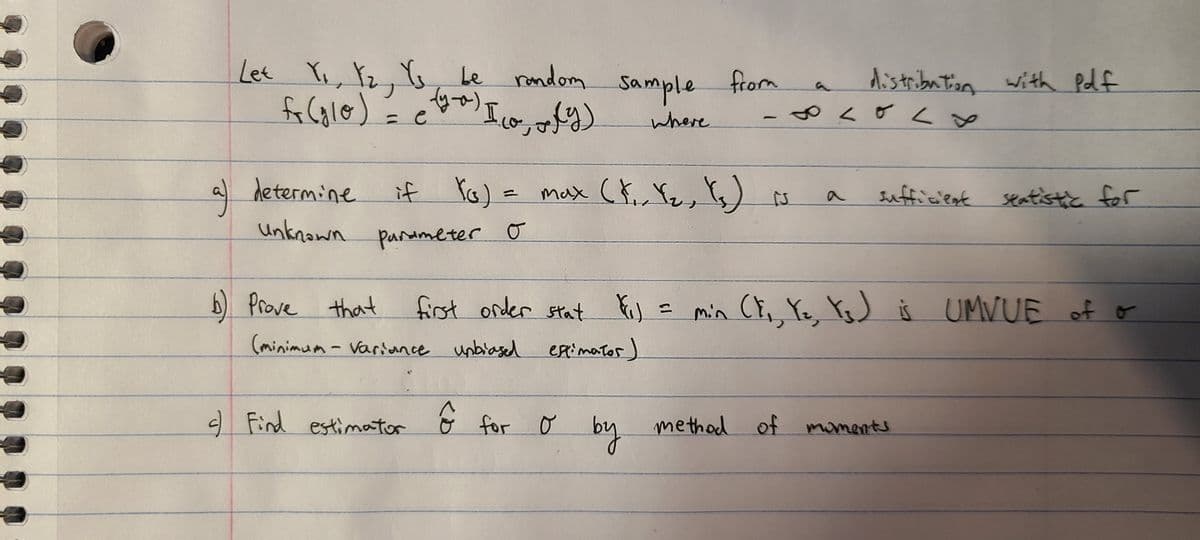 Let Y₁, Y₂, Y₃ be random sample from a distribution with pdf
f_Y(y|σ) = e^-(y-σ) I(σ, ∞)(y) where -∞ < σ < ∞
a) determine if Y(3) = max (Y₁, Y₂, Y₃) is a sufficient statistic for
unknown parameter σ
b) Prove that first order stat Y(1) = min (Y₁, Y₂, Y₃) is UMVUE of σ
(minimum - variance unbiased estimator)
c) Find estimator σ̂ for σ by method of moments